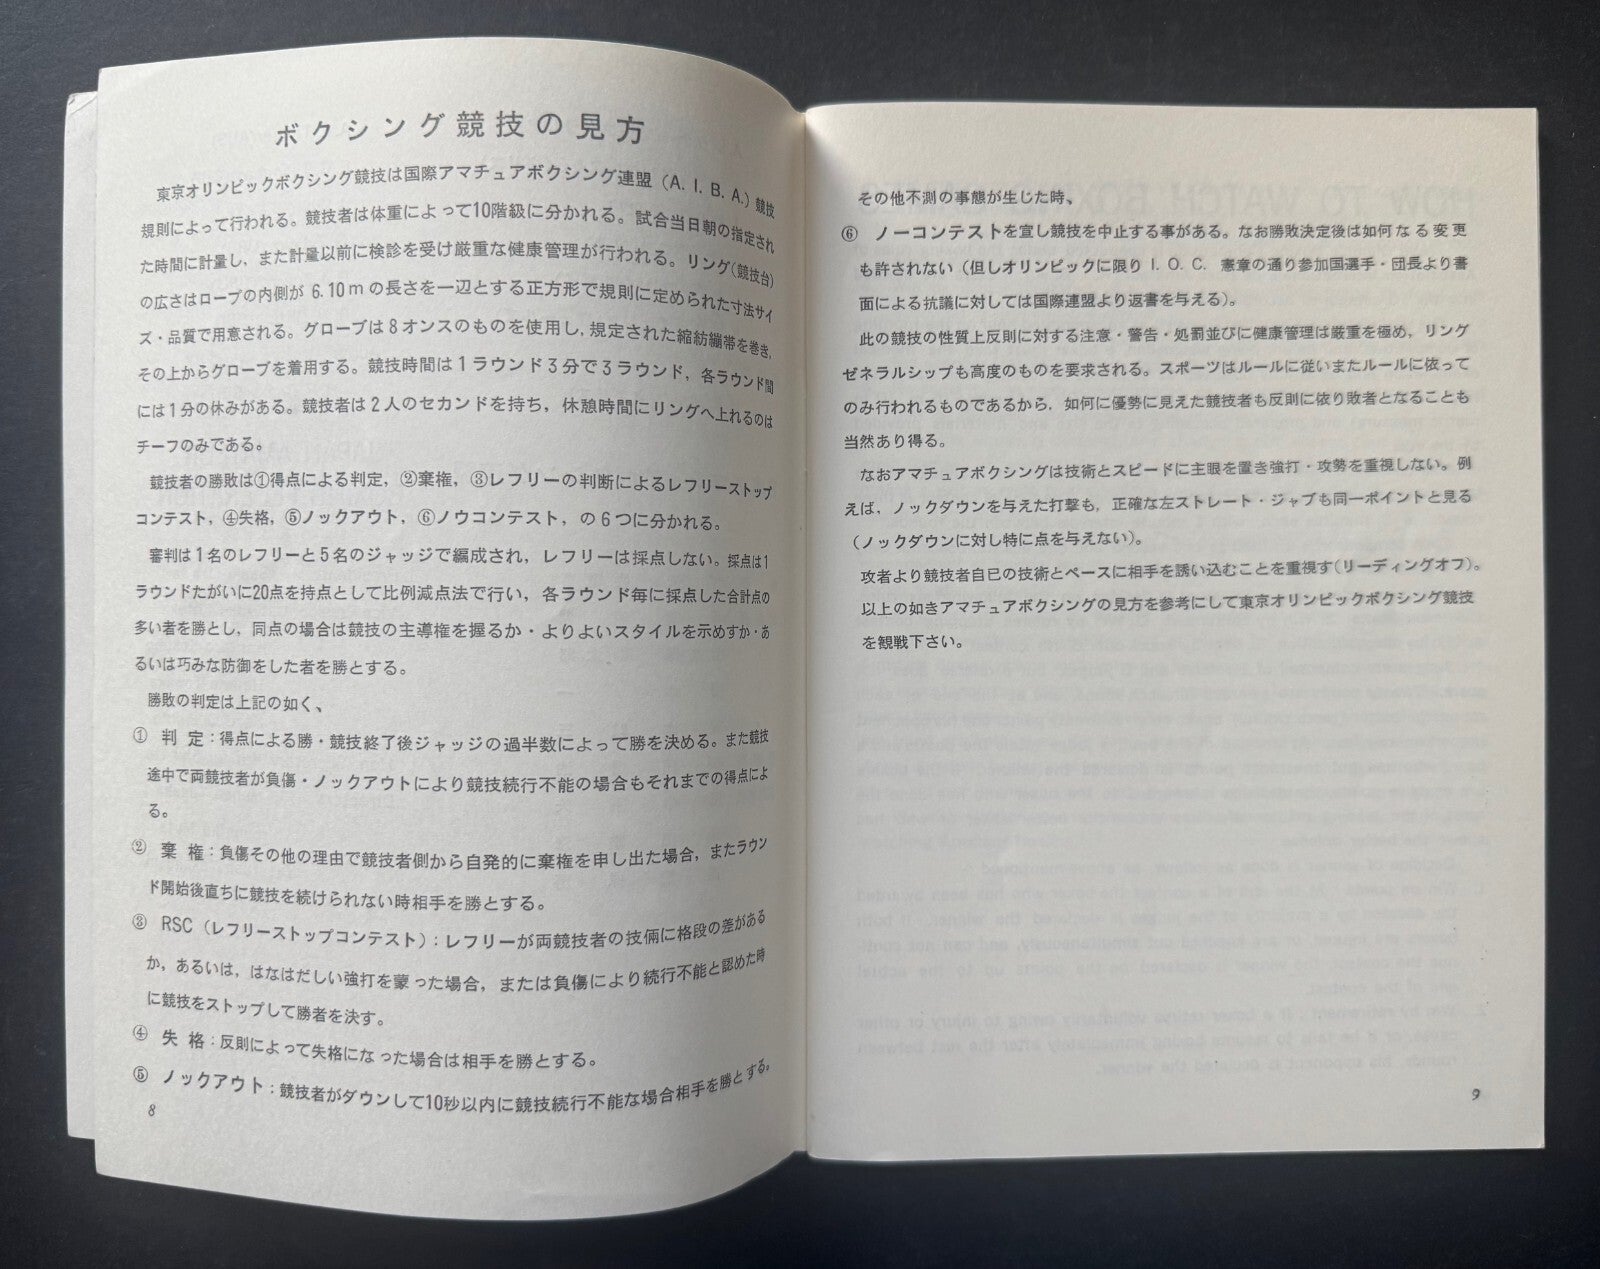 ボクシング競技の見方
東京オリンピックボクシング競技は国際アマチュアボクシング連盟 (A. I. B. A.) 競技
規則によって行われる。競技者は体重によって10階級に分かれる。試合当日朝の指定され
た時間に計量し，また計量以前に検診を受け厳重な健康管理が行われる。リング(競技台)
の広さはロープの内側が 6.10m の長さを一辺とする正方形で規則に定められた寸法サイ
ズ・品質で用意される。グローブは8オンスのものを使用し,規定された縮紡繃帯を巻き，
その上からグローブを着用する。競技時間は1ラウンド3分で3ラウンド，各ラウンド間
には1分の休みがある。競技者は2人のセカンドを持ち，休憩時間にリングへ上れるのは
チーフのみである。
競技者の勝敗は①得点による判定，②棄権，③レフリーの判断によるレフリーストップ
コンテスト，④失格，⑤ノックアウト，⑥ノウコンテスト，の6つに分かれる。
審判は1名のレフリーと5名のジャッジで編成され，レフリーは採点しない。採点は1
ラウンドたがいに20点を持点として比例減点法で行い，各ラウンド毎に採点した合計点の
多い者を勝とし，同点の場合は競技の主導権を握るか・よりよいスタイルを示めすか・あ
るいは巧みな防御をした者を勝とする。
勝敗の判定は上記の如く、
① 判 定：得点による勝・競技終了後ジャッジの過半数によって勝を決める。また競技
途中で両競技者が負傷・ノックアウトにより競技続行不能の場合もそれまでの得点によ
る。
② 棄 権：負傷その他の理由で競技者側から自発的に棄権を申し出た場合，またラウン
ド開始後直ちに競技を続けられない時相手を勝とする。
③ RSC (レフリーストップコンテスト)：レフリーが両競技者の技倆に格段の差がある
か，あるいは，はなはだしい強打を蒙った場合，または負傷により続行不能と認めた時
に競技をストップして勝者を決す。
④ 失 格：反則によって失格になった場合は相手を勝とする。
⑤ ノックアウト：競技者がダウンして10秒以内に競技続行不能な場合相手を勝とする。
8
その他不測の事態が生じた時、
⑥ ノーコンテストを宣し競技を中止する事がある。なお勝敗決定後は如何なる変更
も許されない (但しオリンピックに限り I. O. C. 憲章の通り参加国選手・団長より書
面による抗議に対しては国際連盟より返書を与える)。
此の競技の性質上反則に対する注意・警告・処罰並びに健康管理は厳重を極め，リング
ゼネラルシップも高度のものを要求される。スポーツはルールに従いまたルールに依って
のみ行われるものであるから，如何に優勢に見えた競技者も反則に依り敗者となることも
当然あり得る。
なおアマチュアボクシングは技術とスピードに主眼を置き強打・攻勢を重視しない。例
えば，ノックダウンを与えた打撃も，正確な左ストレート・ジャブも同一ポイントと見る
(ノックダウンに対し特に点を与えない)。
攻者より競技者自已の技術とペースに相手を誘い込むことを重視す(リーディングオフ)。
以上の如きアマチュアボクシングの見方を参考にして東京オリンピックボクシング競技
を観戦下さい。
9